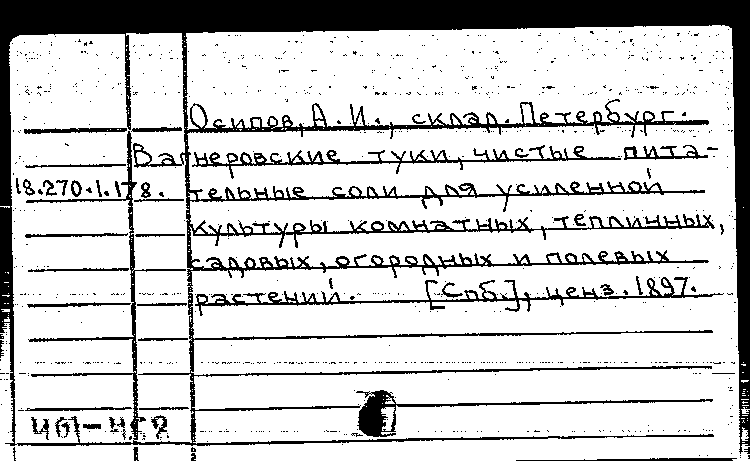 Осипов, А. И., склад. Петербург.
Вагнеровские туки, чистые пита-
18.270.1.178. тельные соли для усиленной
культуры комнатных, теплинных,
садовых, огородных и полевых
растений. [Спб.], ценз. 1897.